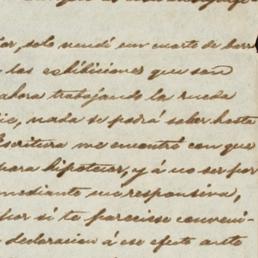 lor, solo vendí un cuarto de barra
las exhibiciones que son
ahora trabajando la rueda
io, nada se podrá saber hasta
Escritura me encontró con que
para hipotecar, y á no ser por
mediante una responsiva,
por si te pareciese conveni-
declaracion á ese efecto ante